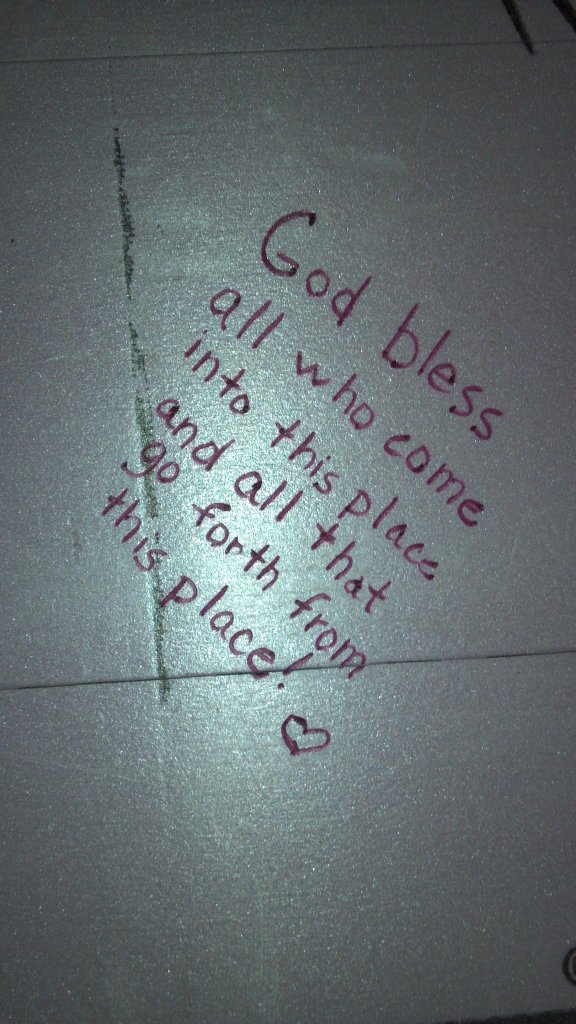 God bless
all who come
into this place
and all that
go forth from
this place!